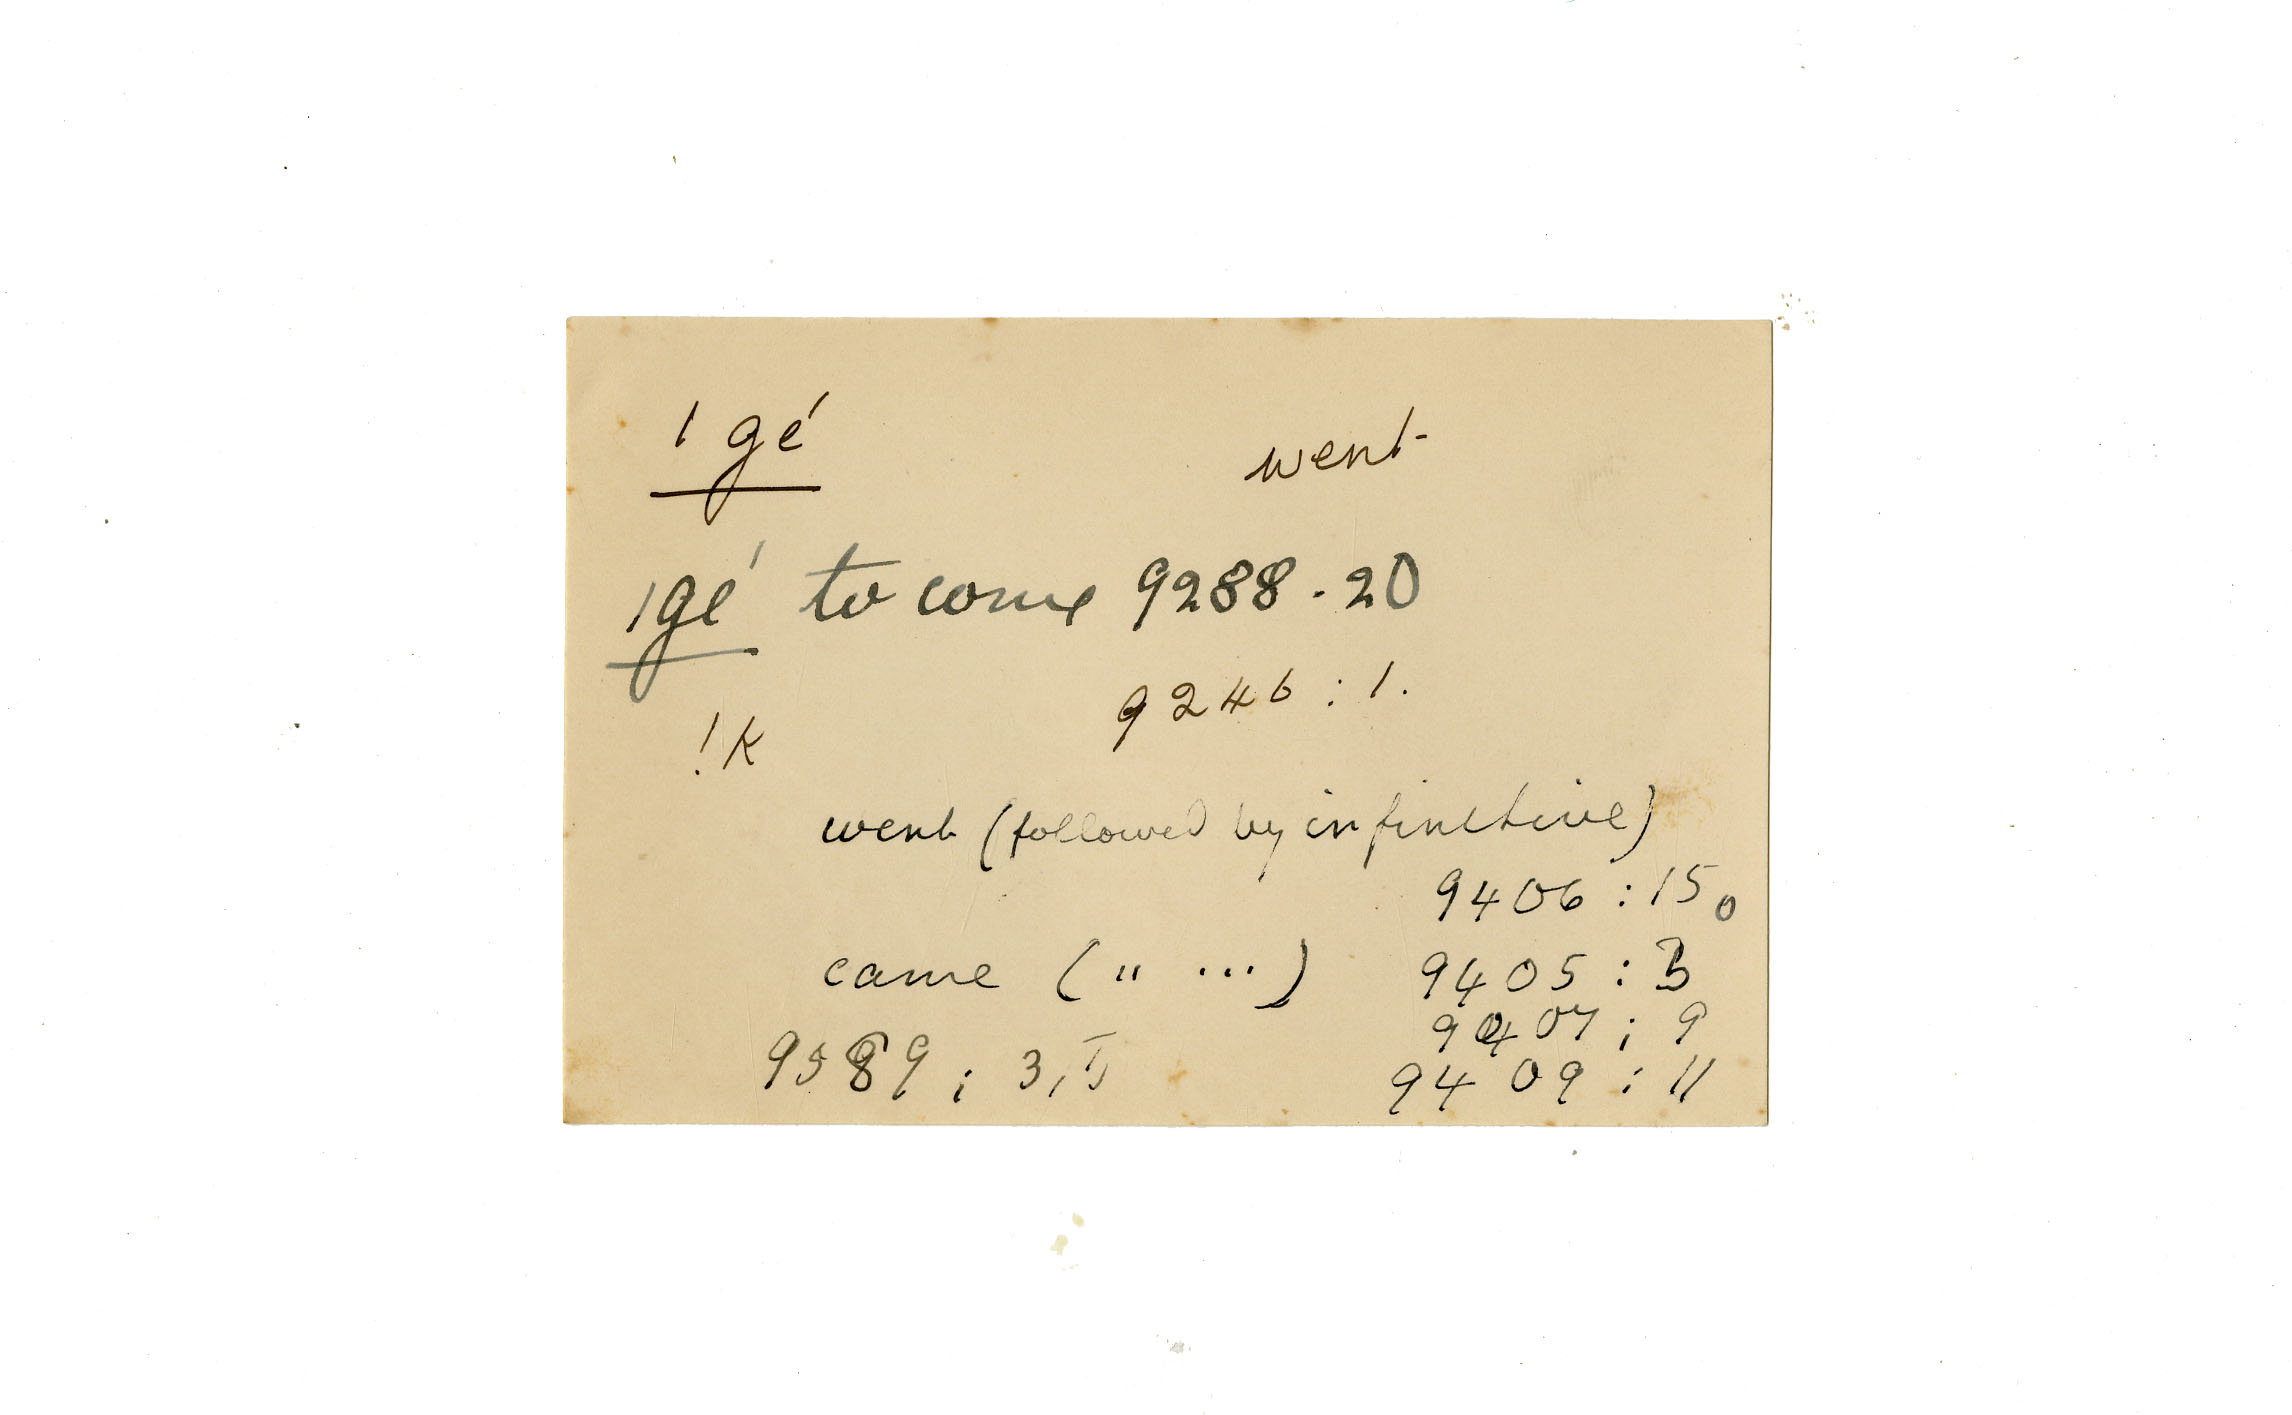 / gé went
/gé to come 9288.20
9246 : 1.
!k
went (followed by infinitive)
9406 : 15
came ( " ... ) 9405 : 3
9407 ; 9
9589 ; 3, 9409 : 11